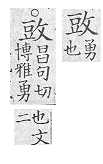 昌句切
博雅勇
也文
二
勇
也